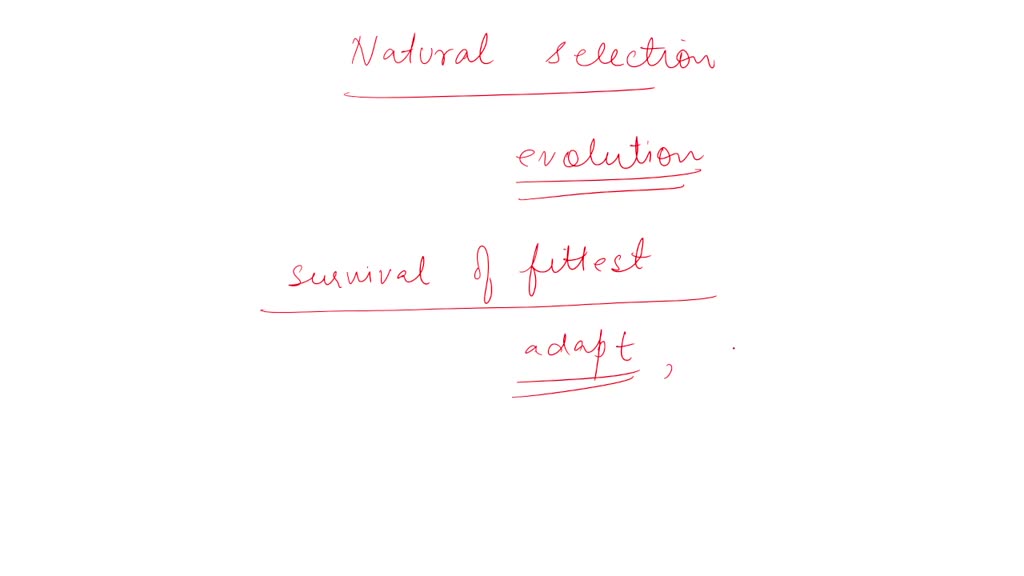 Natural selection
evolution
survival of fittest
adapt,